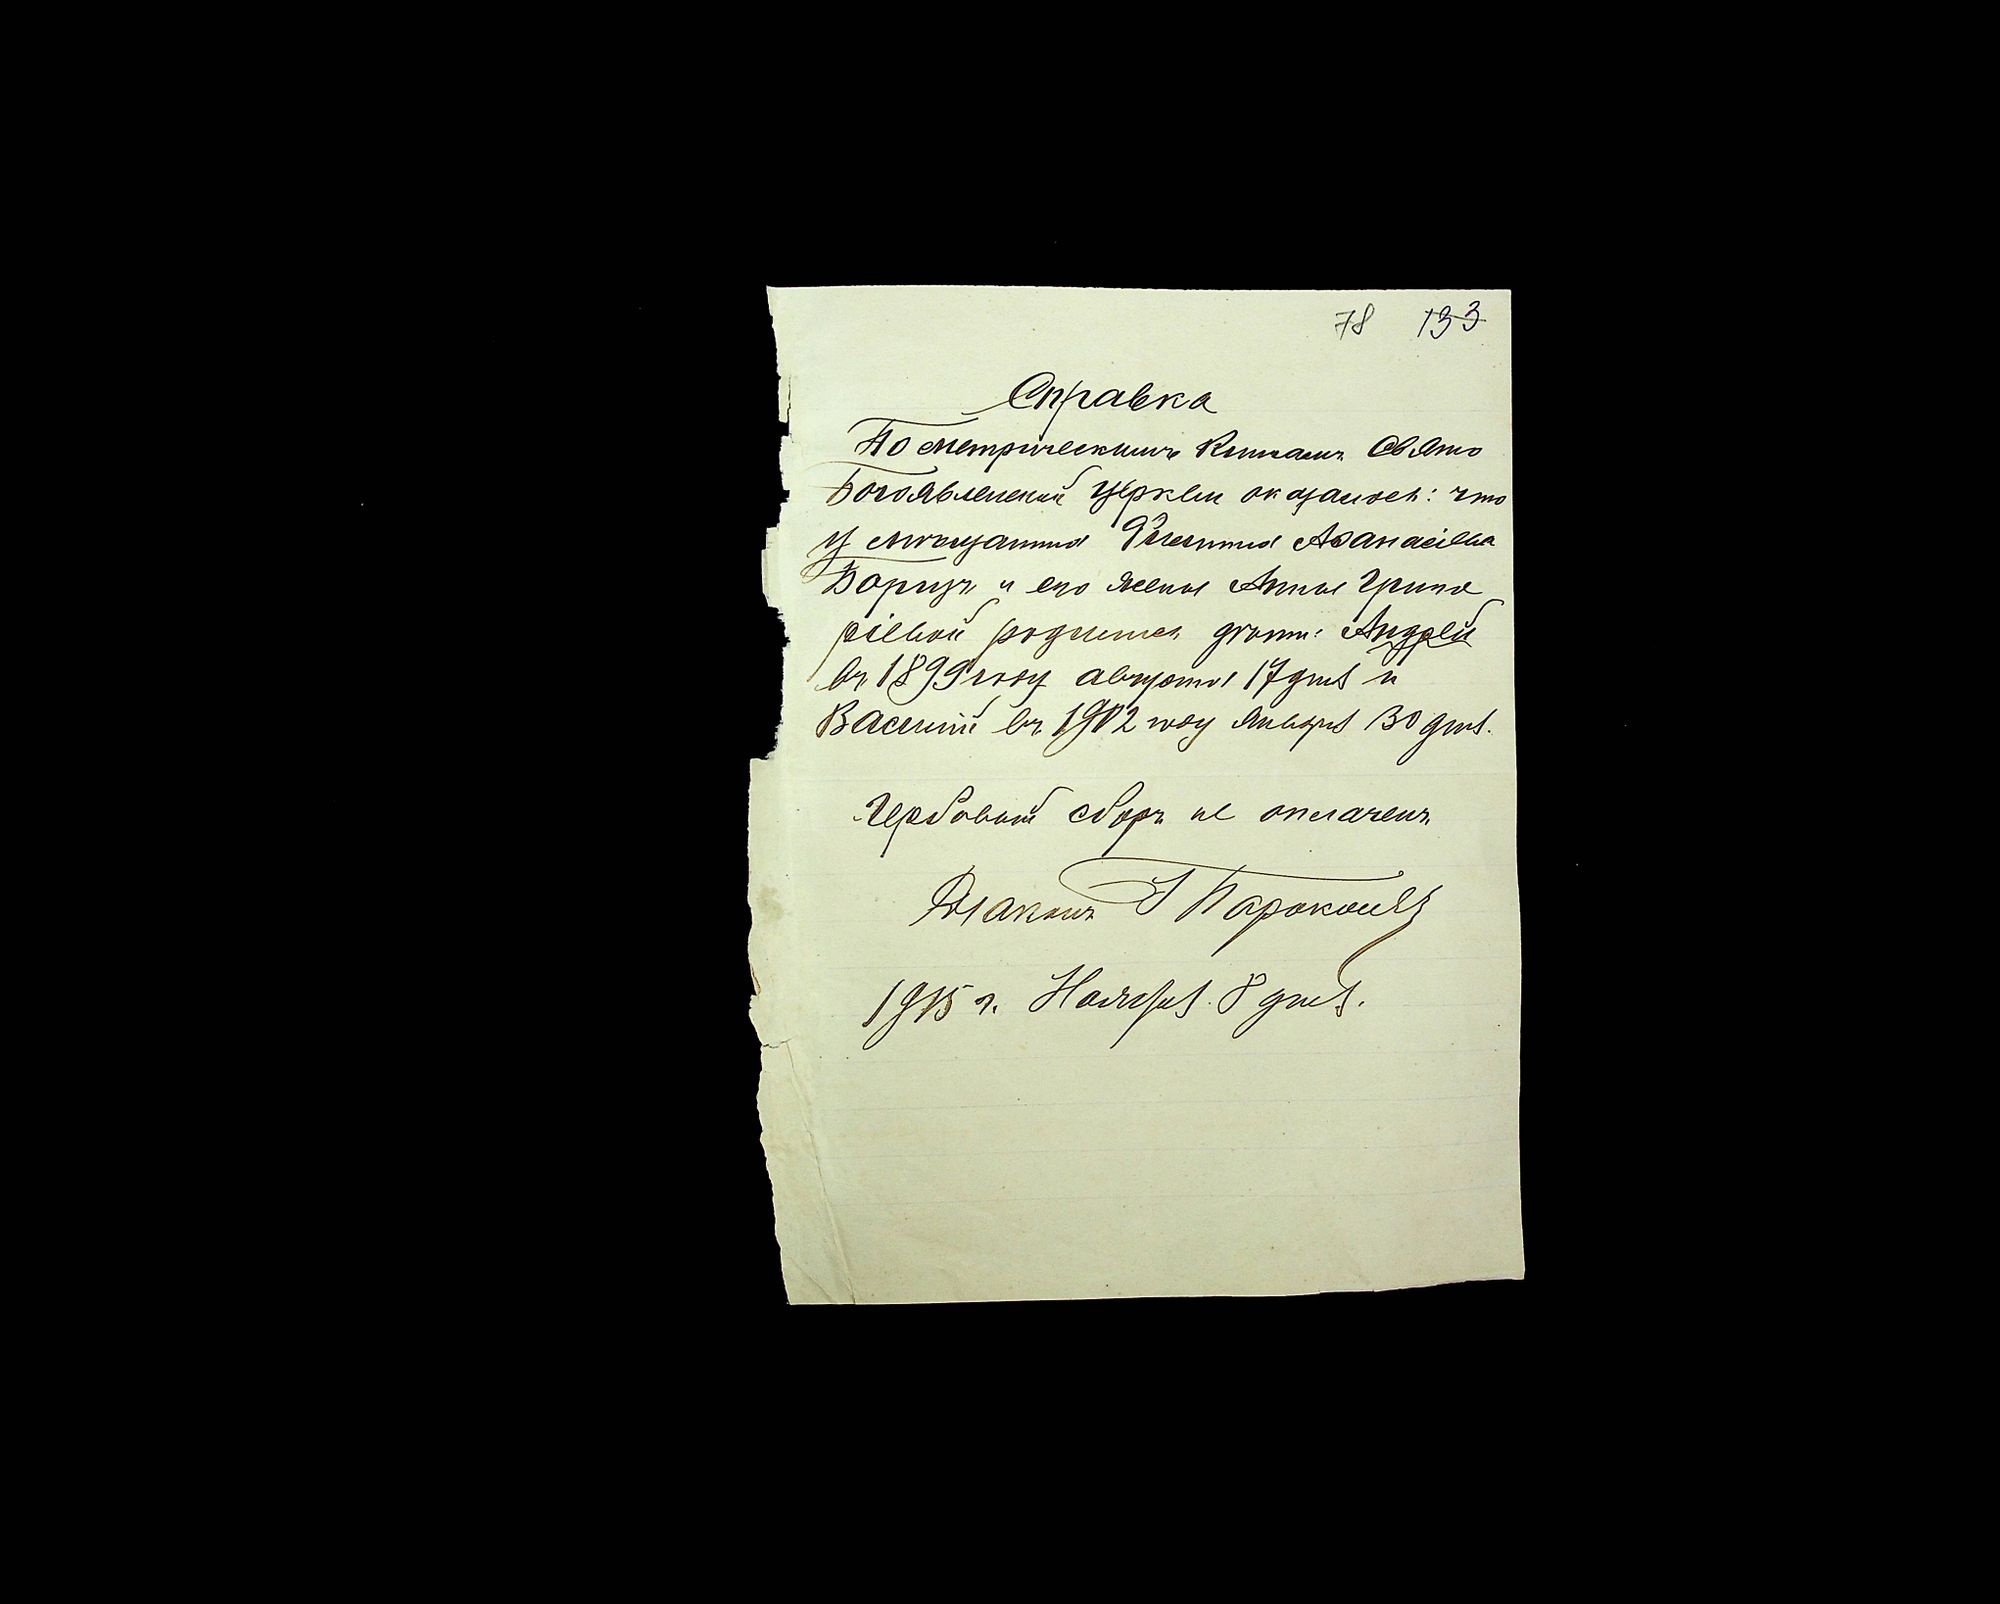 78 133
Справка
По метрическимъ Книгамъ Свято
Богоявленской Церкви оказалось: что
у мѣщанина Филиппа Аѳанасіева
Борца и его жены Анны Григо
ріевой родились дѣти: Андрей
въ 1899 году августа 17 дня и
Василій въ 1902 году января 30 дня.
Гербовый сборъ не оплаченъ
Діаконъ
1915 г. Ноября 8 дня.